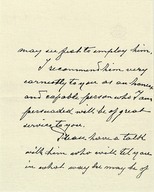 may see fit to employ him.
I recommend him very
earnestly to you as an honest
and capable person who I am
persuaded will be of great
service to you.
Please have a talk
with him who will tell you
in what way he may be of